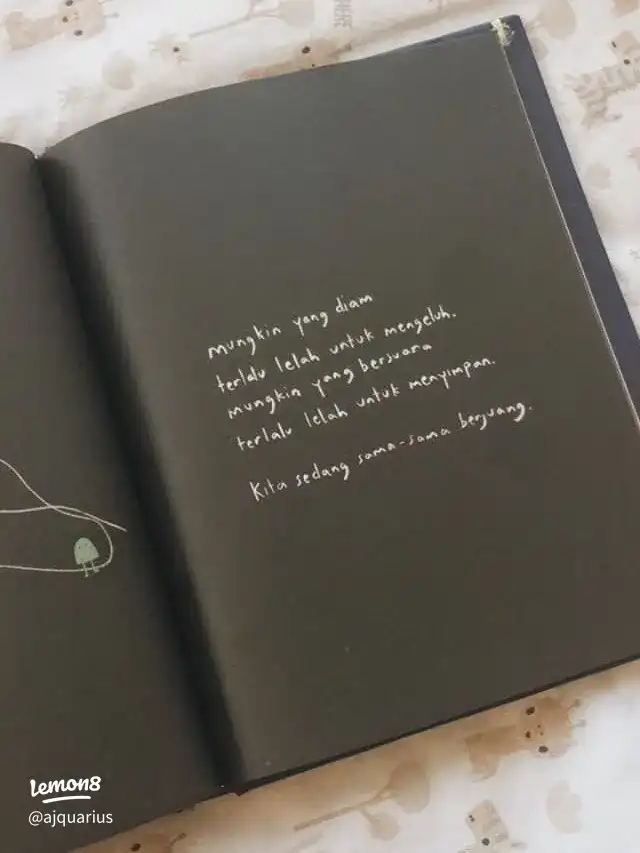 mungkin yang diam
terlalu lelah untuk mengeluh.
mungkin yang bersuara
terlalu lelah untuk menyimpan.
Kita sedang sama-sama berjuang.
lemon8
@ajquarius